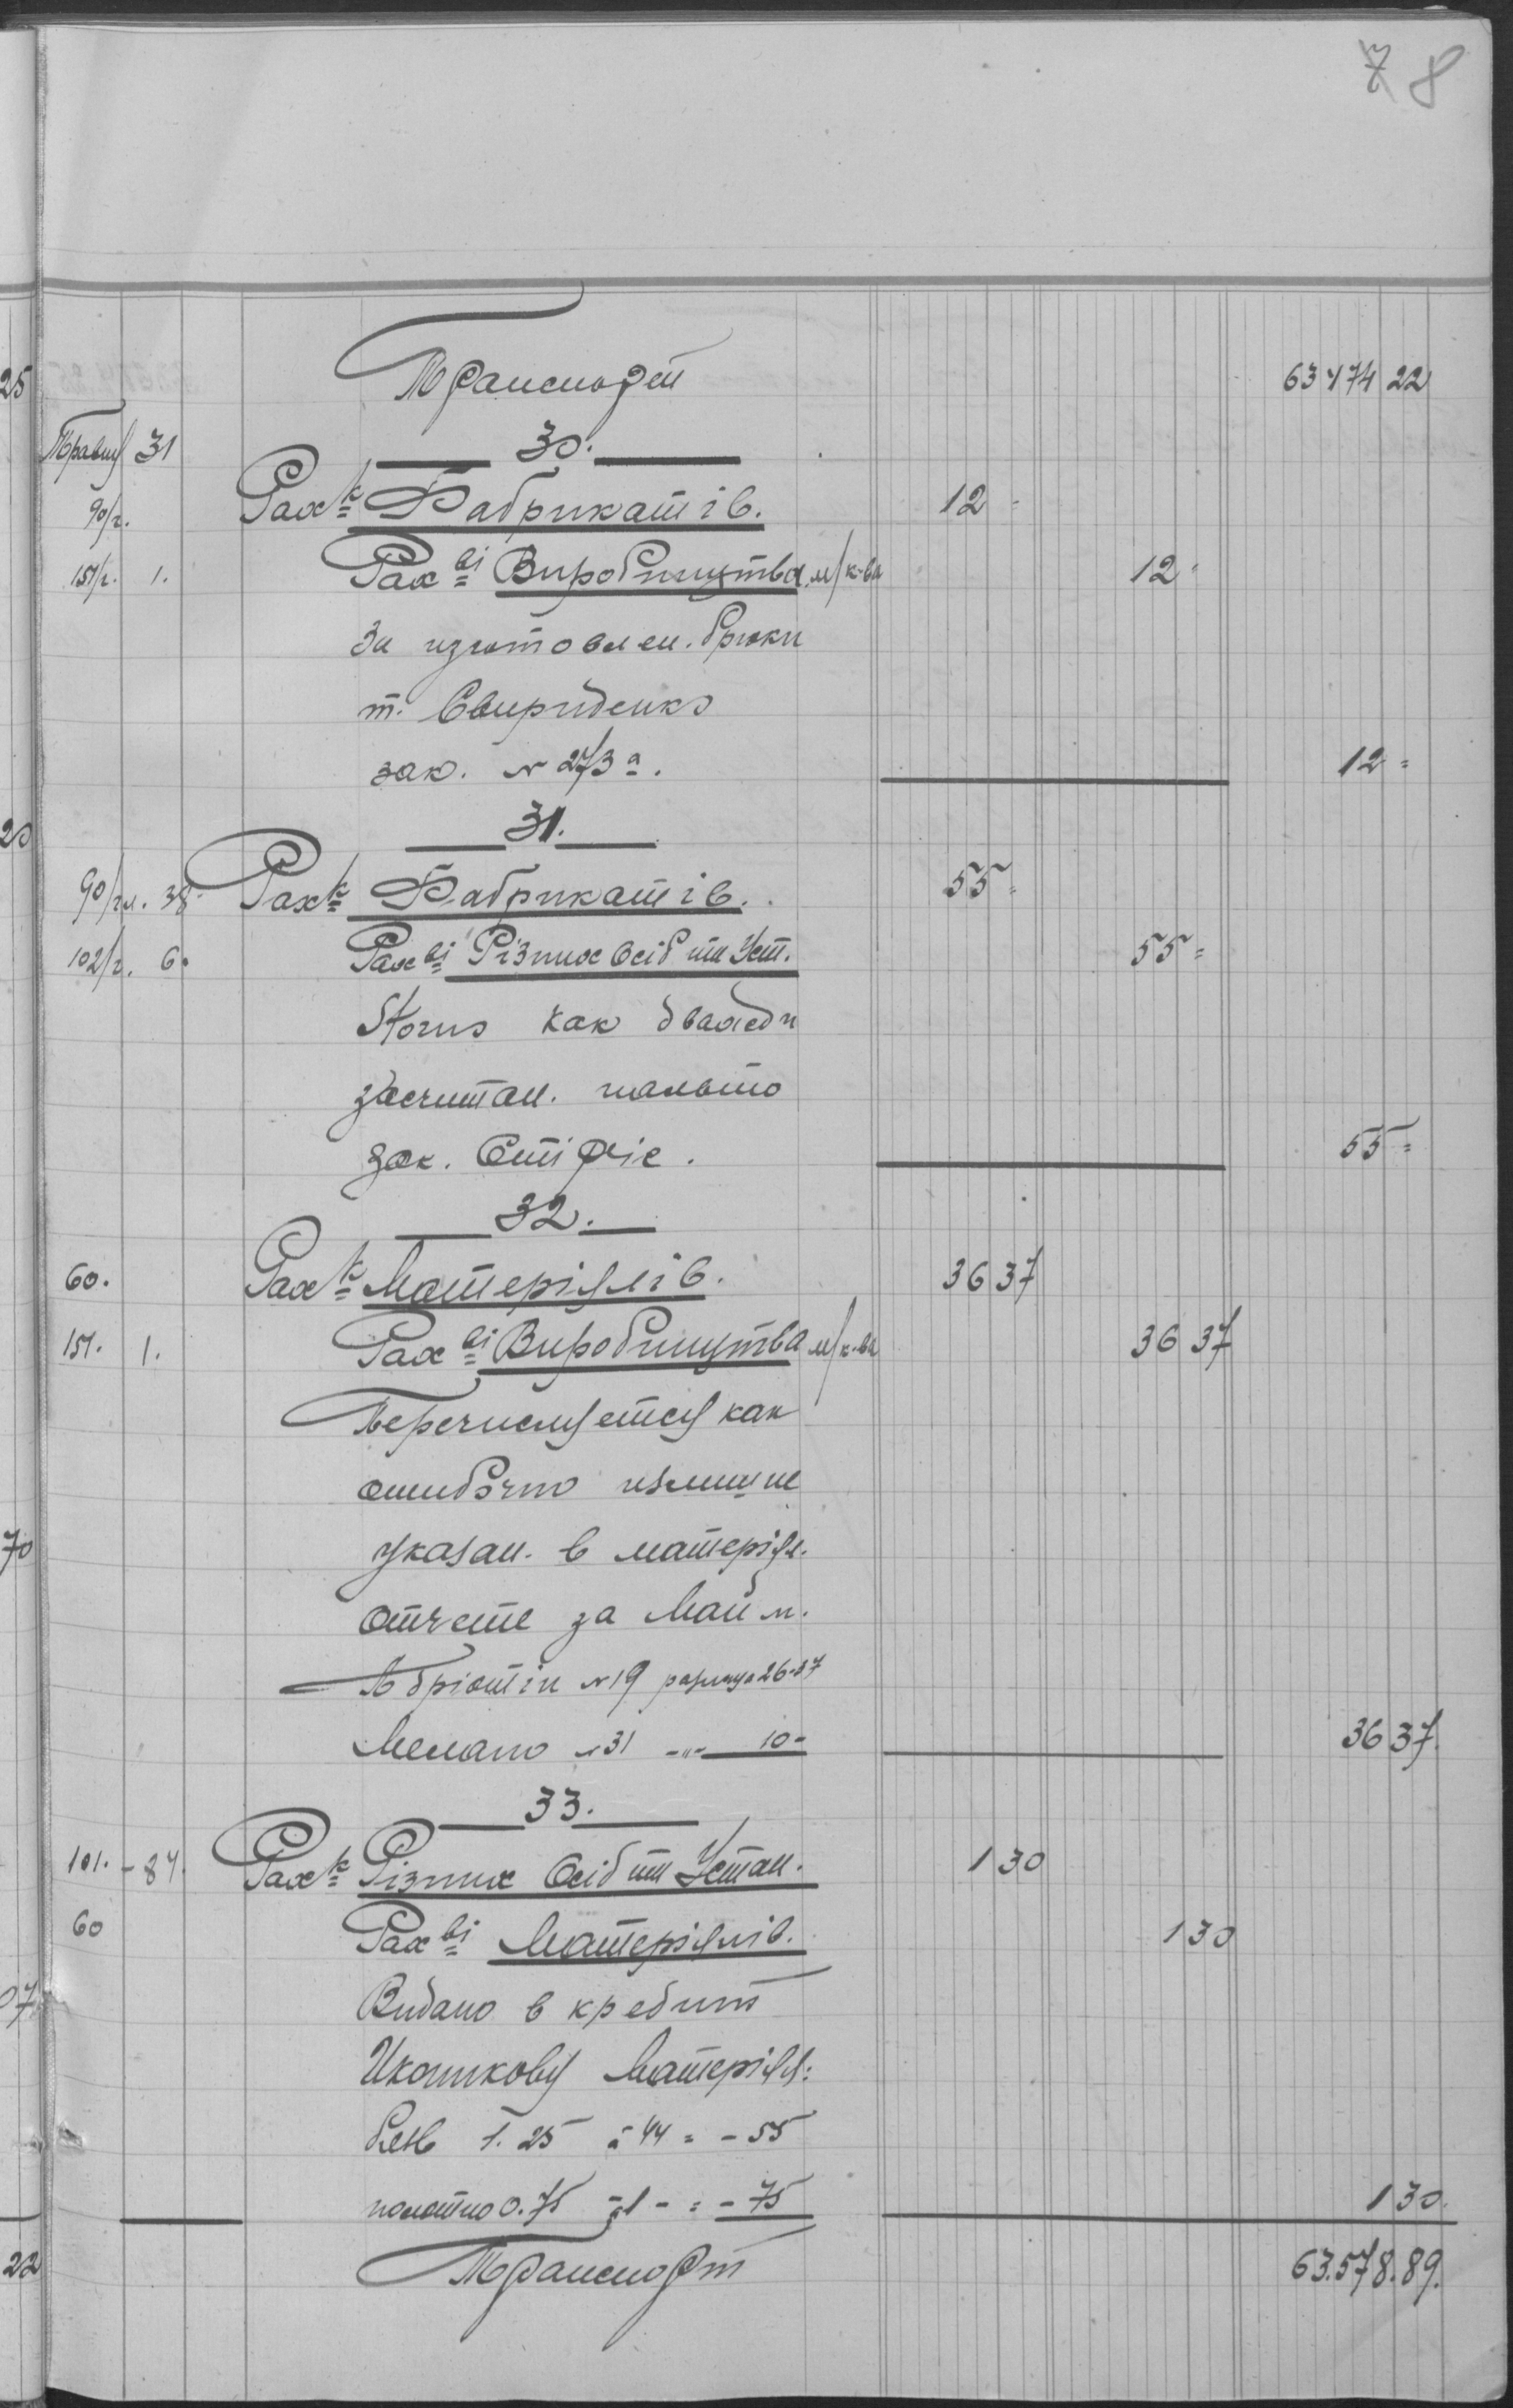 7 8
Транспорт 63474 22
Травня 31 30.
90/г. Рах-к Фабрикатів. 12=
151/г. 1. Рах-ві Виробництва м/к-ва 12=
За изготовлен. брюки
т. Свириденко
зак. № 273а. 12=
31.
90/гл. 38. Рах-к Фабрикатів. 55=
102/г. 6. Рах-ві Різних Осіб та Уст. 55=
Storno как дважди
засчитан. пальто
зак. 55=
32.
60. Рах-к Матеріялів. 36 37
151. 1. Рах-ві Виробництва м/к-ва 36 37
Перечисляется как
ошибочно излишне
указан. в матеріял.
отчете за Май м.
№ 19 разница 26-37
№ 31 -"- 10- 36 37.
33.
101. - 84. Рах-к Різних Осіб та Устан. 130
60 Рах-ві Матеріялів. 130
Видано в кредит
Матеріял:
1.25 à 44 = - 55
полотно 0.75 à 1- = - 75 130.
Транспорт 63.578.89.
25
20
70
07
22